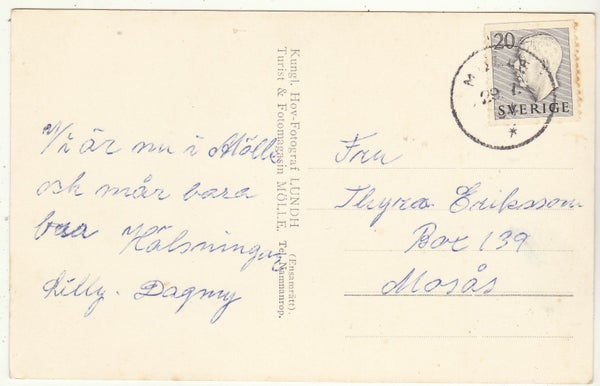 Vi är nu i Mölle
och mår bara
bra Hälsningar
Lilly. Dagmy
Kungl. Hov-Fotograf LUNDH (Ensamrätt).
Turist & Fotomagasin MÖLLE. Tel. Namnanrop.
20
SVERIGE
MÖLLE
Fru
Thyra Eriksson
Box 139
Mosås